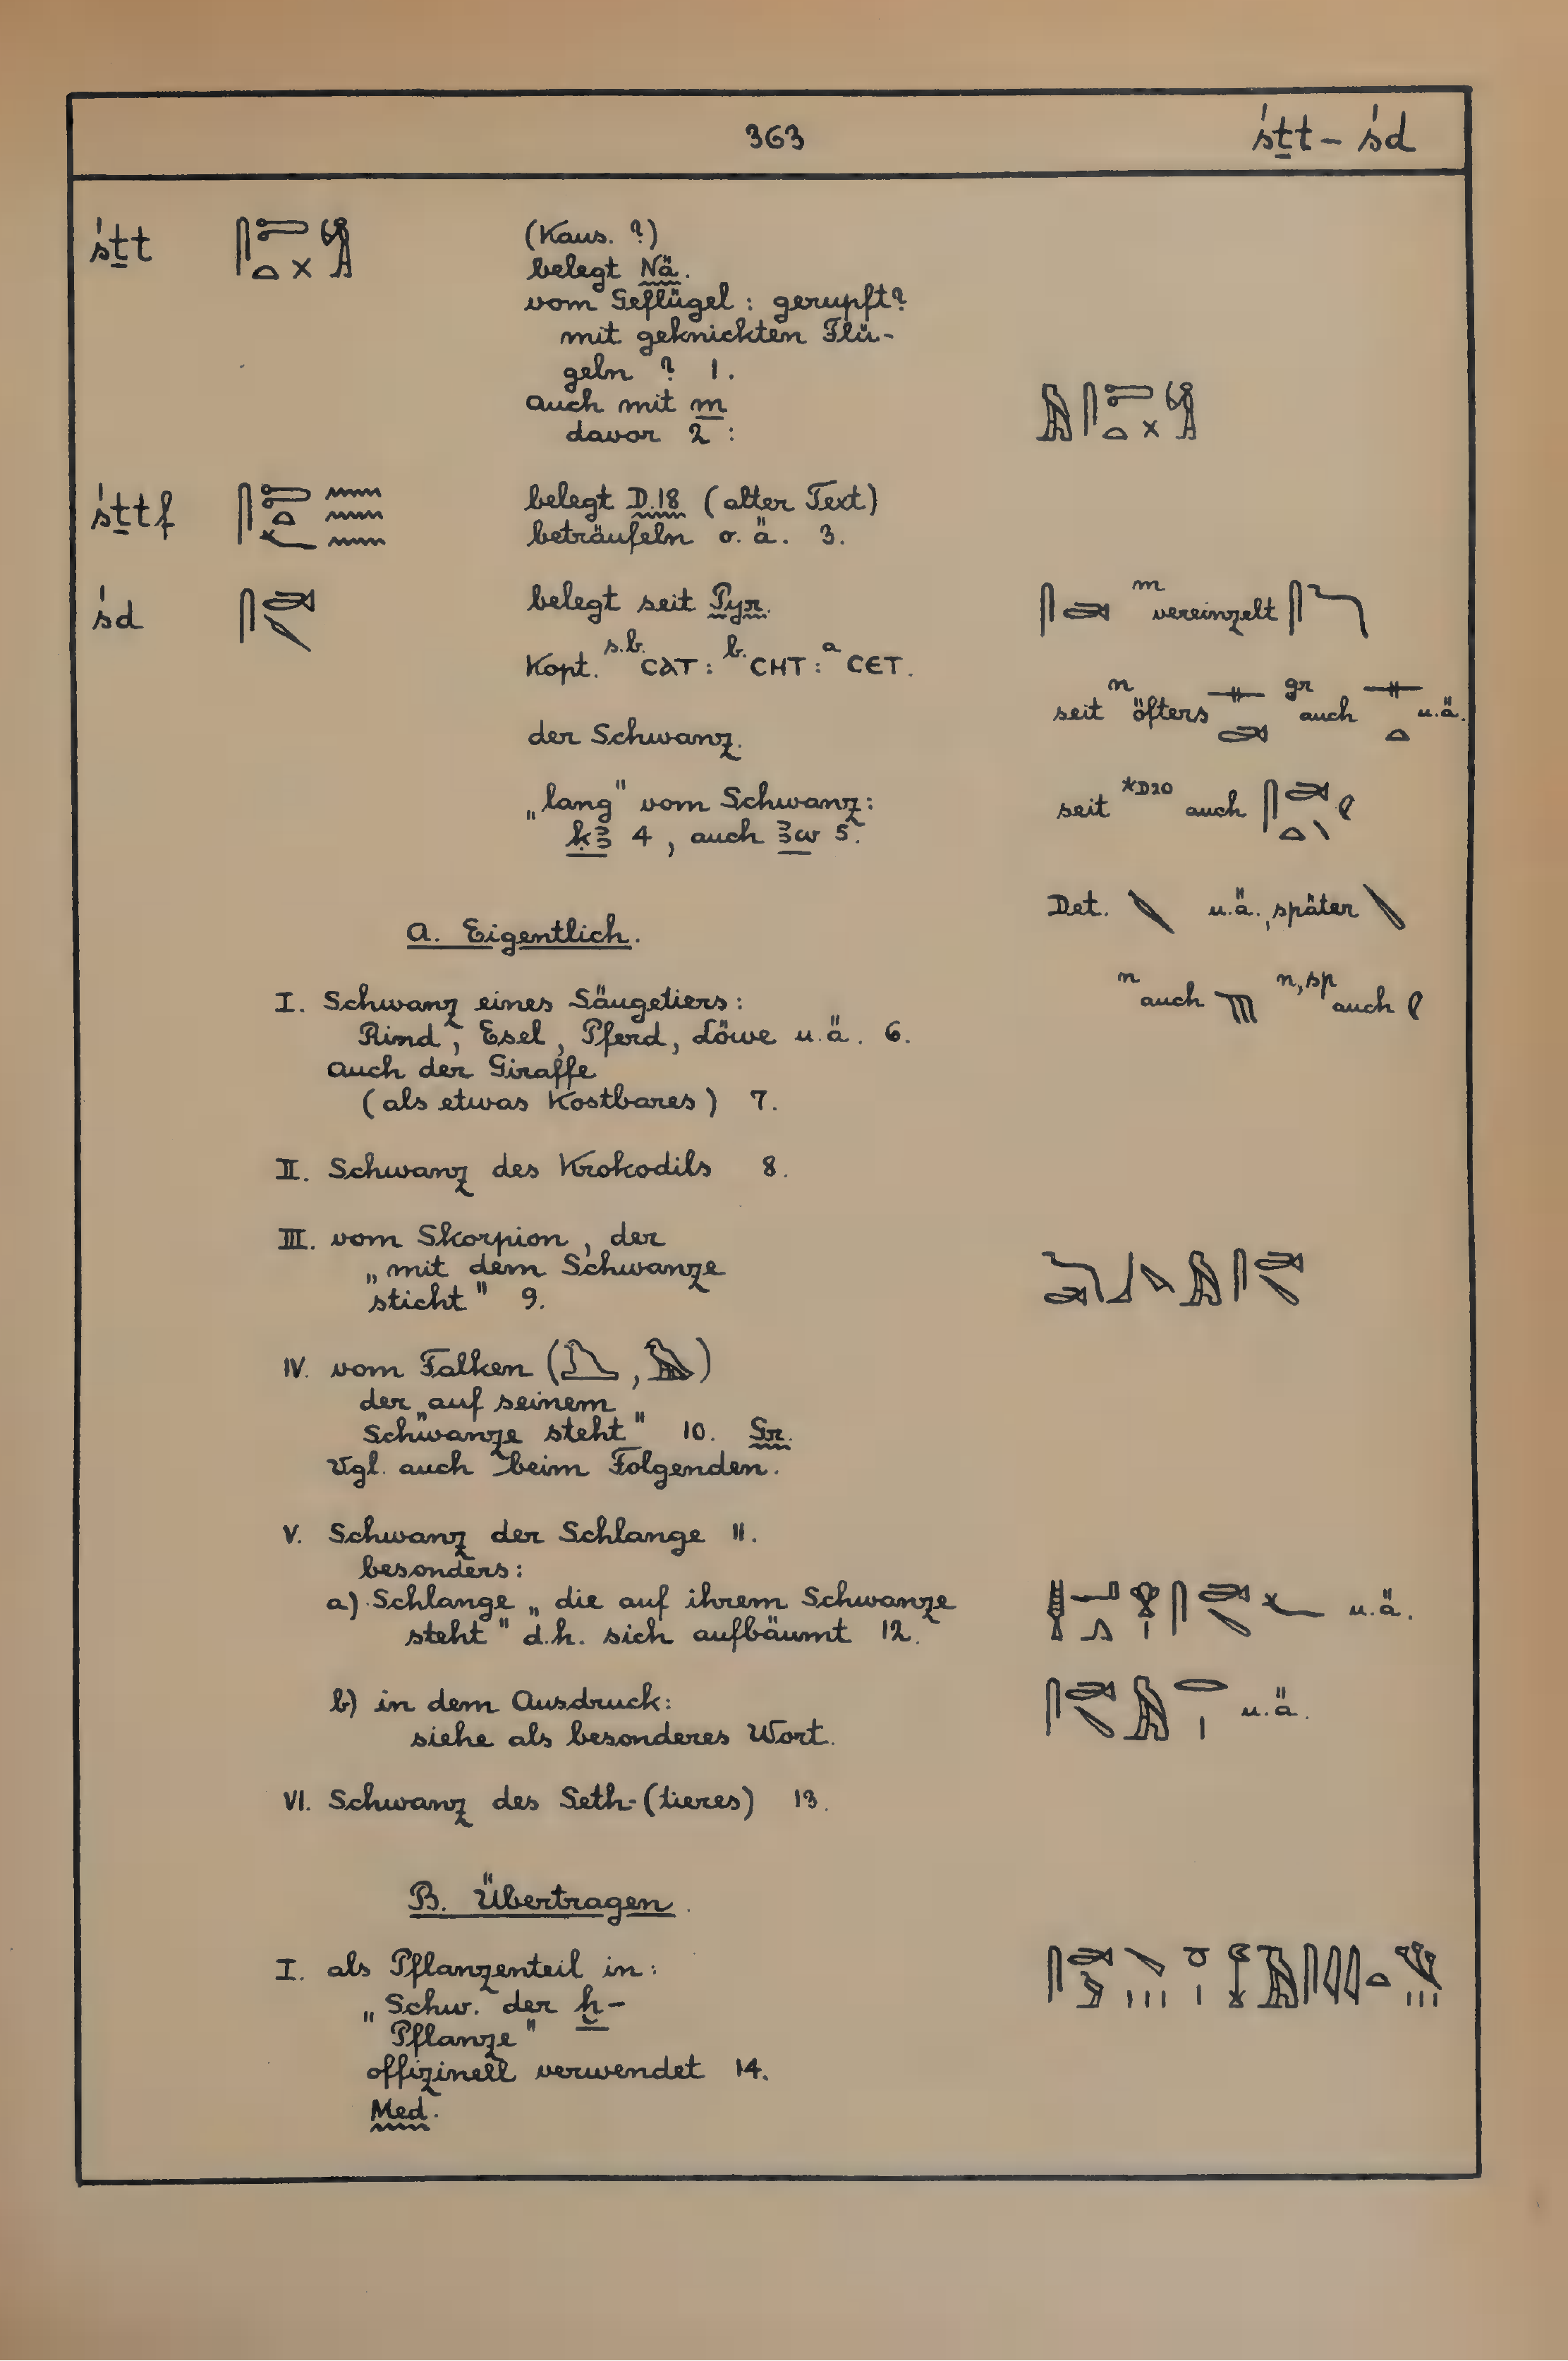 363 śṯt – śd
śṯt (Kaus. ?)
belegt Nä.
vom Geflügel : gerupft?
mit geknickten Flü-
geln ? 1.
auch mit m
davor 2 :
śṯtf belegt D.18 (alter Text)
beträufeln o. ä. 3.
śd belegt seit Pyr. m vereinzelt
Kopt. s.b. CAT : b. CHT : a CET.
seit n öfters gr auch u.ä.
der Schwanz.
„lang" vom Schwanz: seit *D20 auch
ḳꜣ 4 , auch ꜣw 5.
Det. u.ä., später
A. Eigentlich.
n auch n,sp auch
I. Schwanz eines Säugetiers :
Rind, Esel, Pferd, Löwe u.ä. 6.
auch der Giraffe
(als etwas Kostbares) 7.
II. Schwanz des Krokodils 8.
III. vom Skorpion, der
„mit dem Schwanze
sticht" 9.
IV. vom Falken ( , )
der „auf seinem
Schwanze steht" 10. Gr.
Vgl. auch beim Folgenden.
V. Schwanz der Schlange 11.
besonders :
a) Schlange „die auf ihrem Schwanze u.ä.
steht" d.h. sich aufbäumt 12.
b) in dem Ausdruck: u.ä.
siehe als besonderes Wort.
VI. Schwanz des Seth-(tieres) 13.
B. Übertragen.
I. als Pflanzenteil in :
„Schw. der ḫ-
Pflanze"
offizinell verwendet 14.
Med.